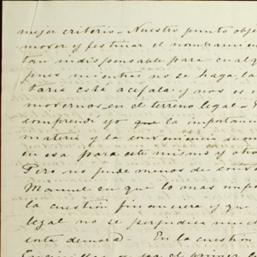 mejor criterio. Nuestro punto obje
mover y festinar el nombramien
tan indispensable para cualq
pues mientras no se haga, la
taria está acéfala y nos es i
movernos en el terreno legal.
comprendo yo que la importanc
materia y la conveniencia
en esa para este mismo y otro
Pero no pude menos de conv
Manuel en que lo mas impo
la cuestión financiera y que
legal no se perjudica
esta demora. En la cuestion